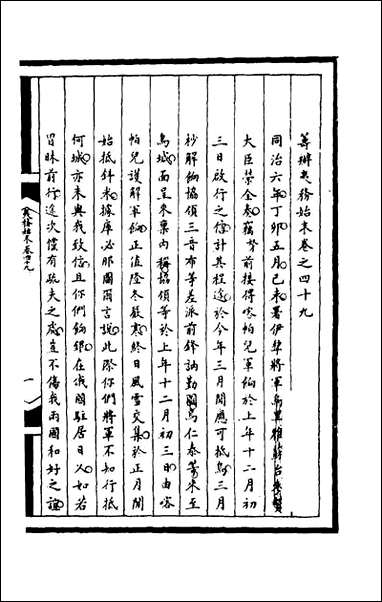 籌辦夷務始末卷之四十九
同治六年丁卯五月己未署伊犂將軍烏里雅蘇台參贊
大臣榮全奏竊前接得喀帕兒軍餉於上年十二月初
三日啟行之信計其程途於今年三月間應可抵烏三月
杪解餉協領三音布等差派前鋒訥勤圖烏仁泰等來至
烏城面呈來稟內稱協領等於上年十二月初三日由喀
帕兒護解軍餉正值隆冬嚴寒終日風雪交集於正月間
始抵斜米據庫必那圖爾言說此際你們將軍不知行抵
何城亦未與我致信且你們餉銀在俄國駐居日久如若
冒昧前行途次儻有疏失之處豈不傷我兩國和好之誼
籌辦始末卷四十九
一